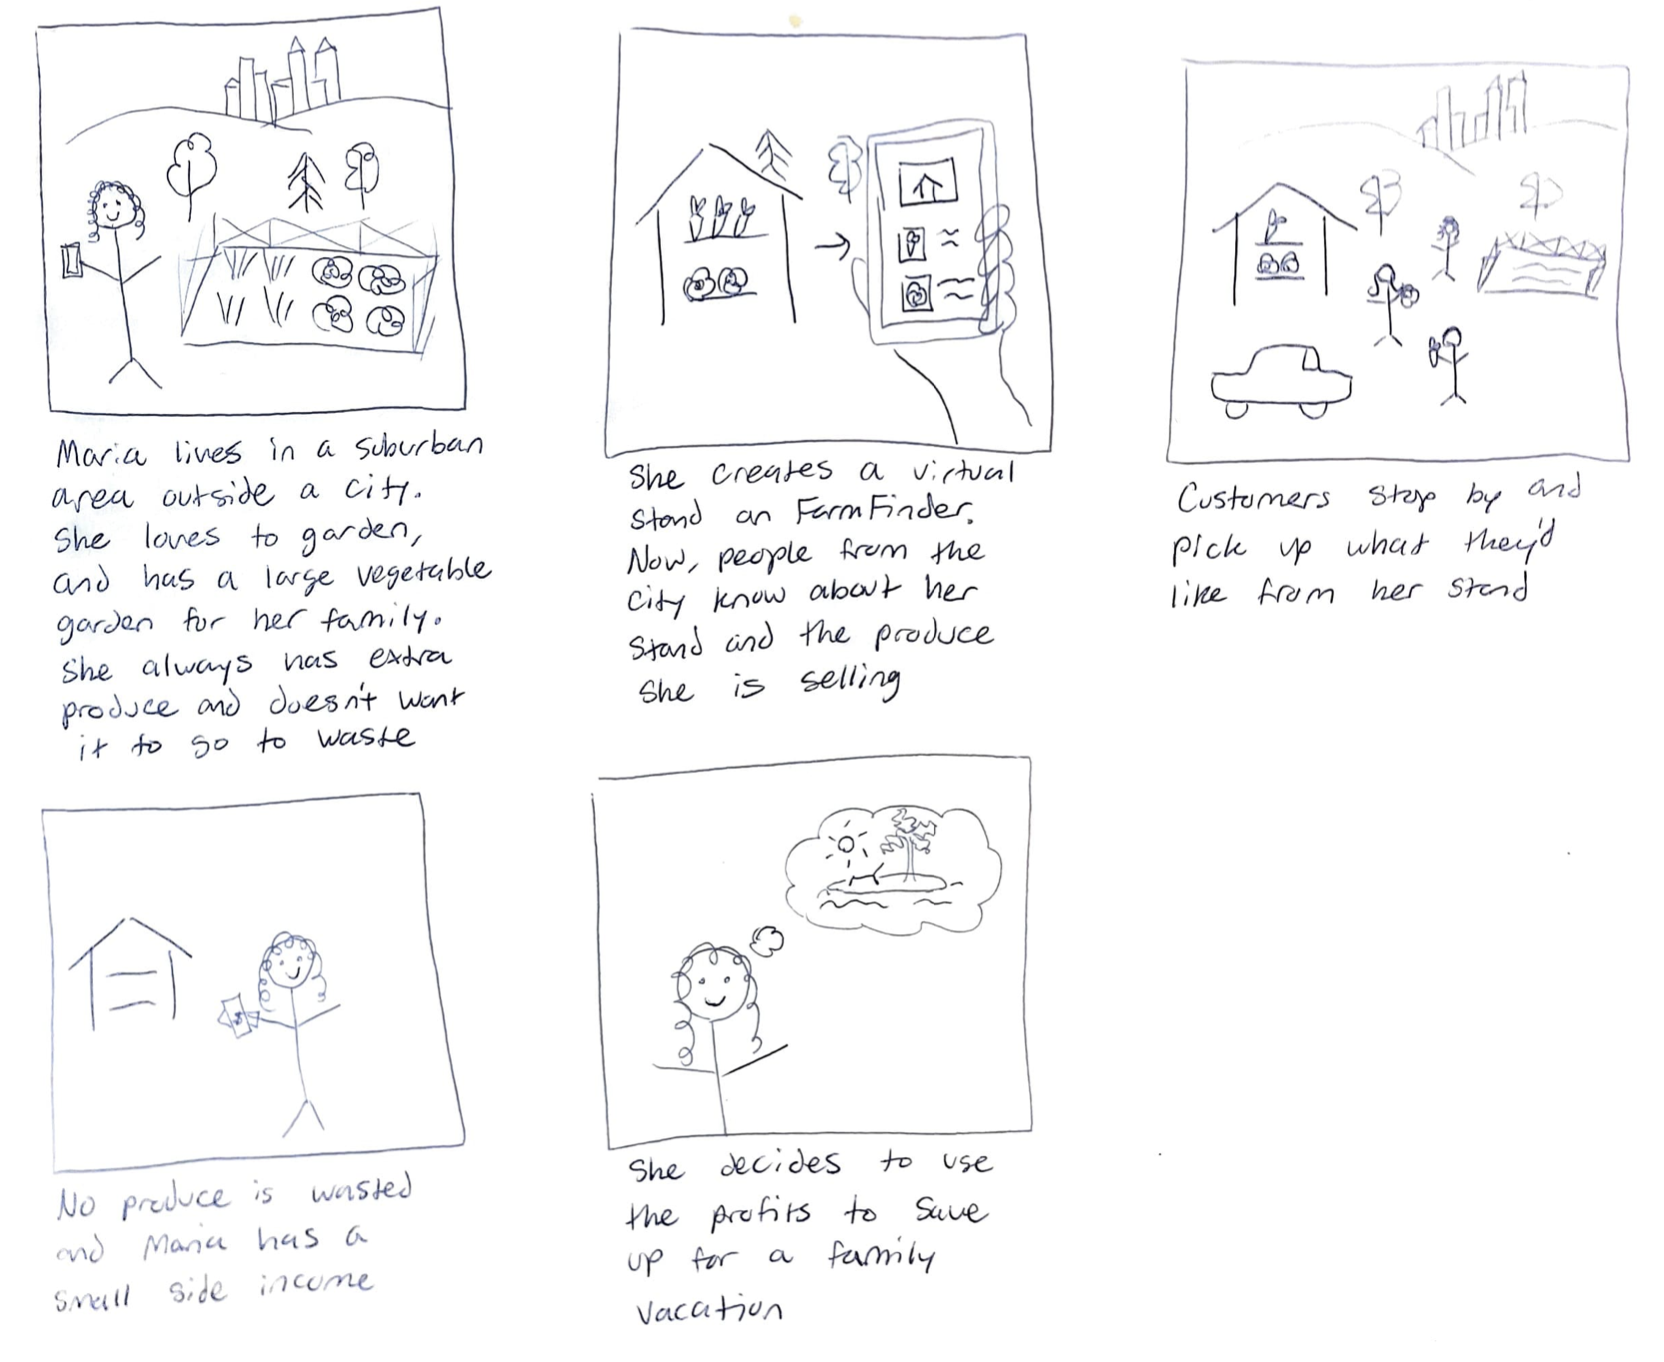 Maria lives in a suburban
area outside a city.
She loves to garden,
and has a large vegetable
garden for her family.
She always has extra
produce and doesn't want
it to go to waste
She creates a virtual
stand on FarmFinder.
Now, people from the
city know about her
stand and the produce
she is selling
Customers stop by and
pick up what they'd
like from her stand
$
No produce is wasted
and Maria has a
small side income
She decides to use
the profits to save
up for a family
vacation